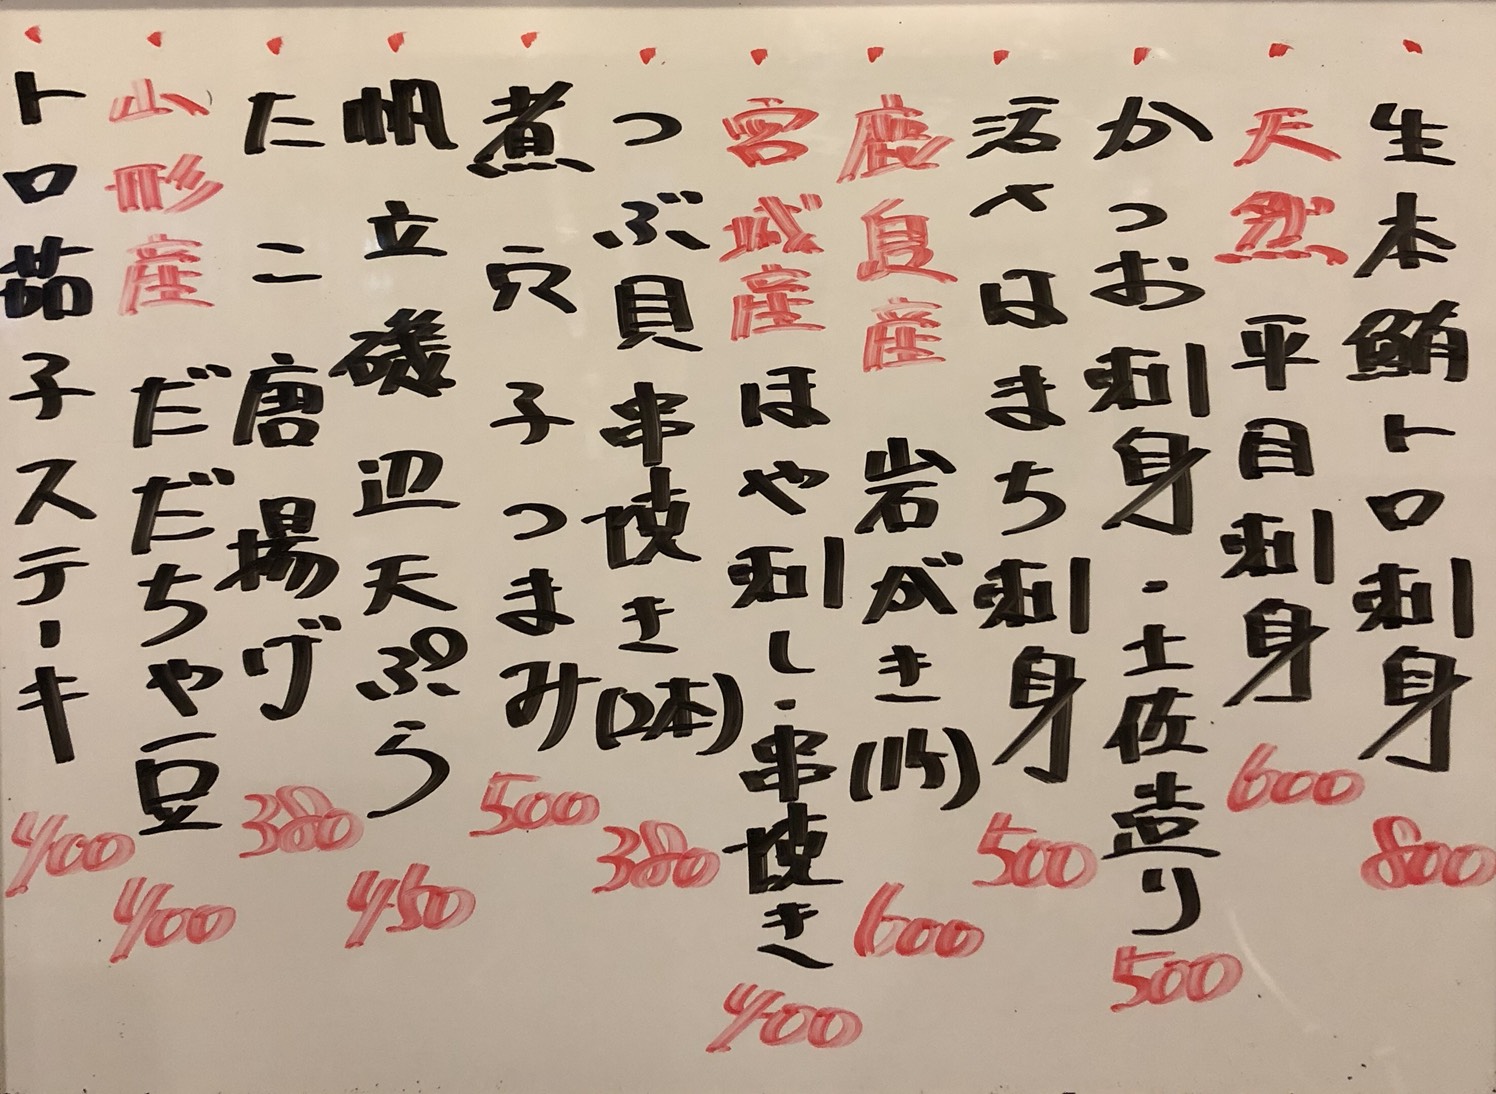 生本鮪トロ刺身 800
天然 平目刺身 600
かつお刺身・土佐造り 500
活〆はまち刺身 500
産 岩がき(1ケ) 600
宮城産 ほや刺し・串焼き 400
つぶ貝串焼き(2本) 380
煮穴子つまみ 500
帆立磯辺天ぷら 450
たこ唐揚げ 380
山形産 だだちゃ豆 400
トロ茄子ステーキ 400